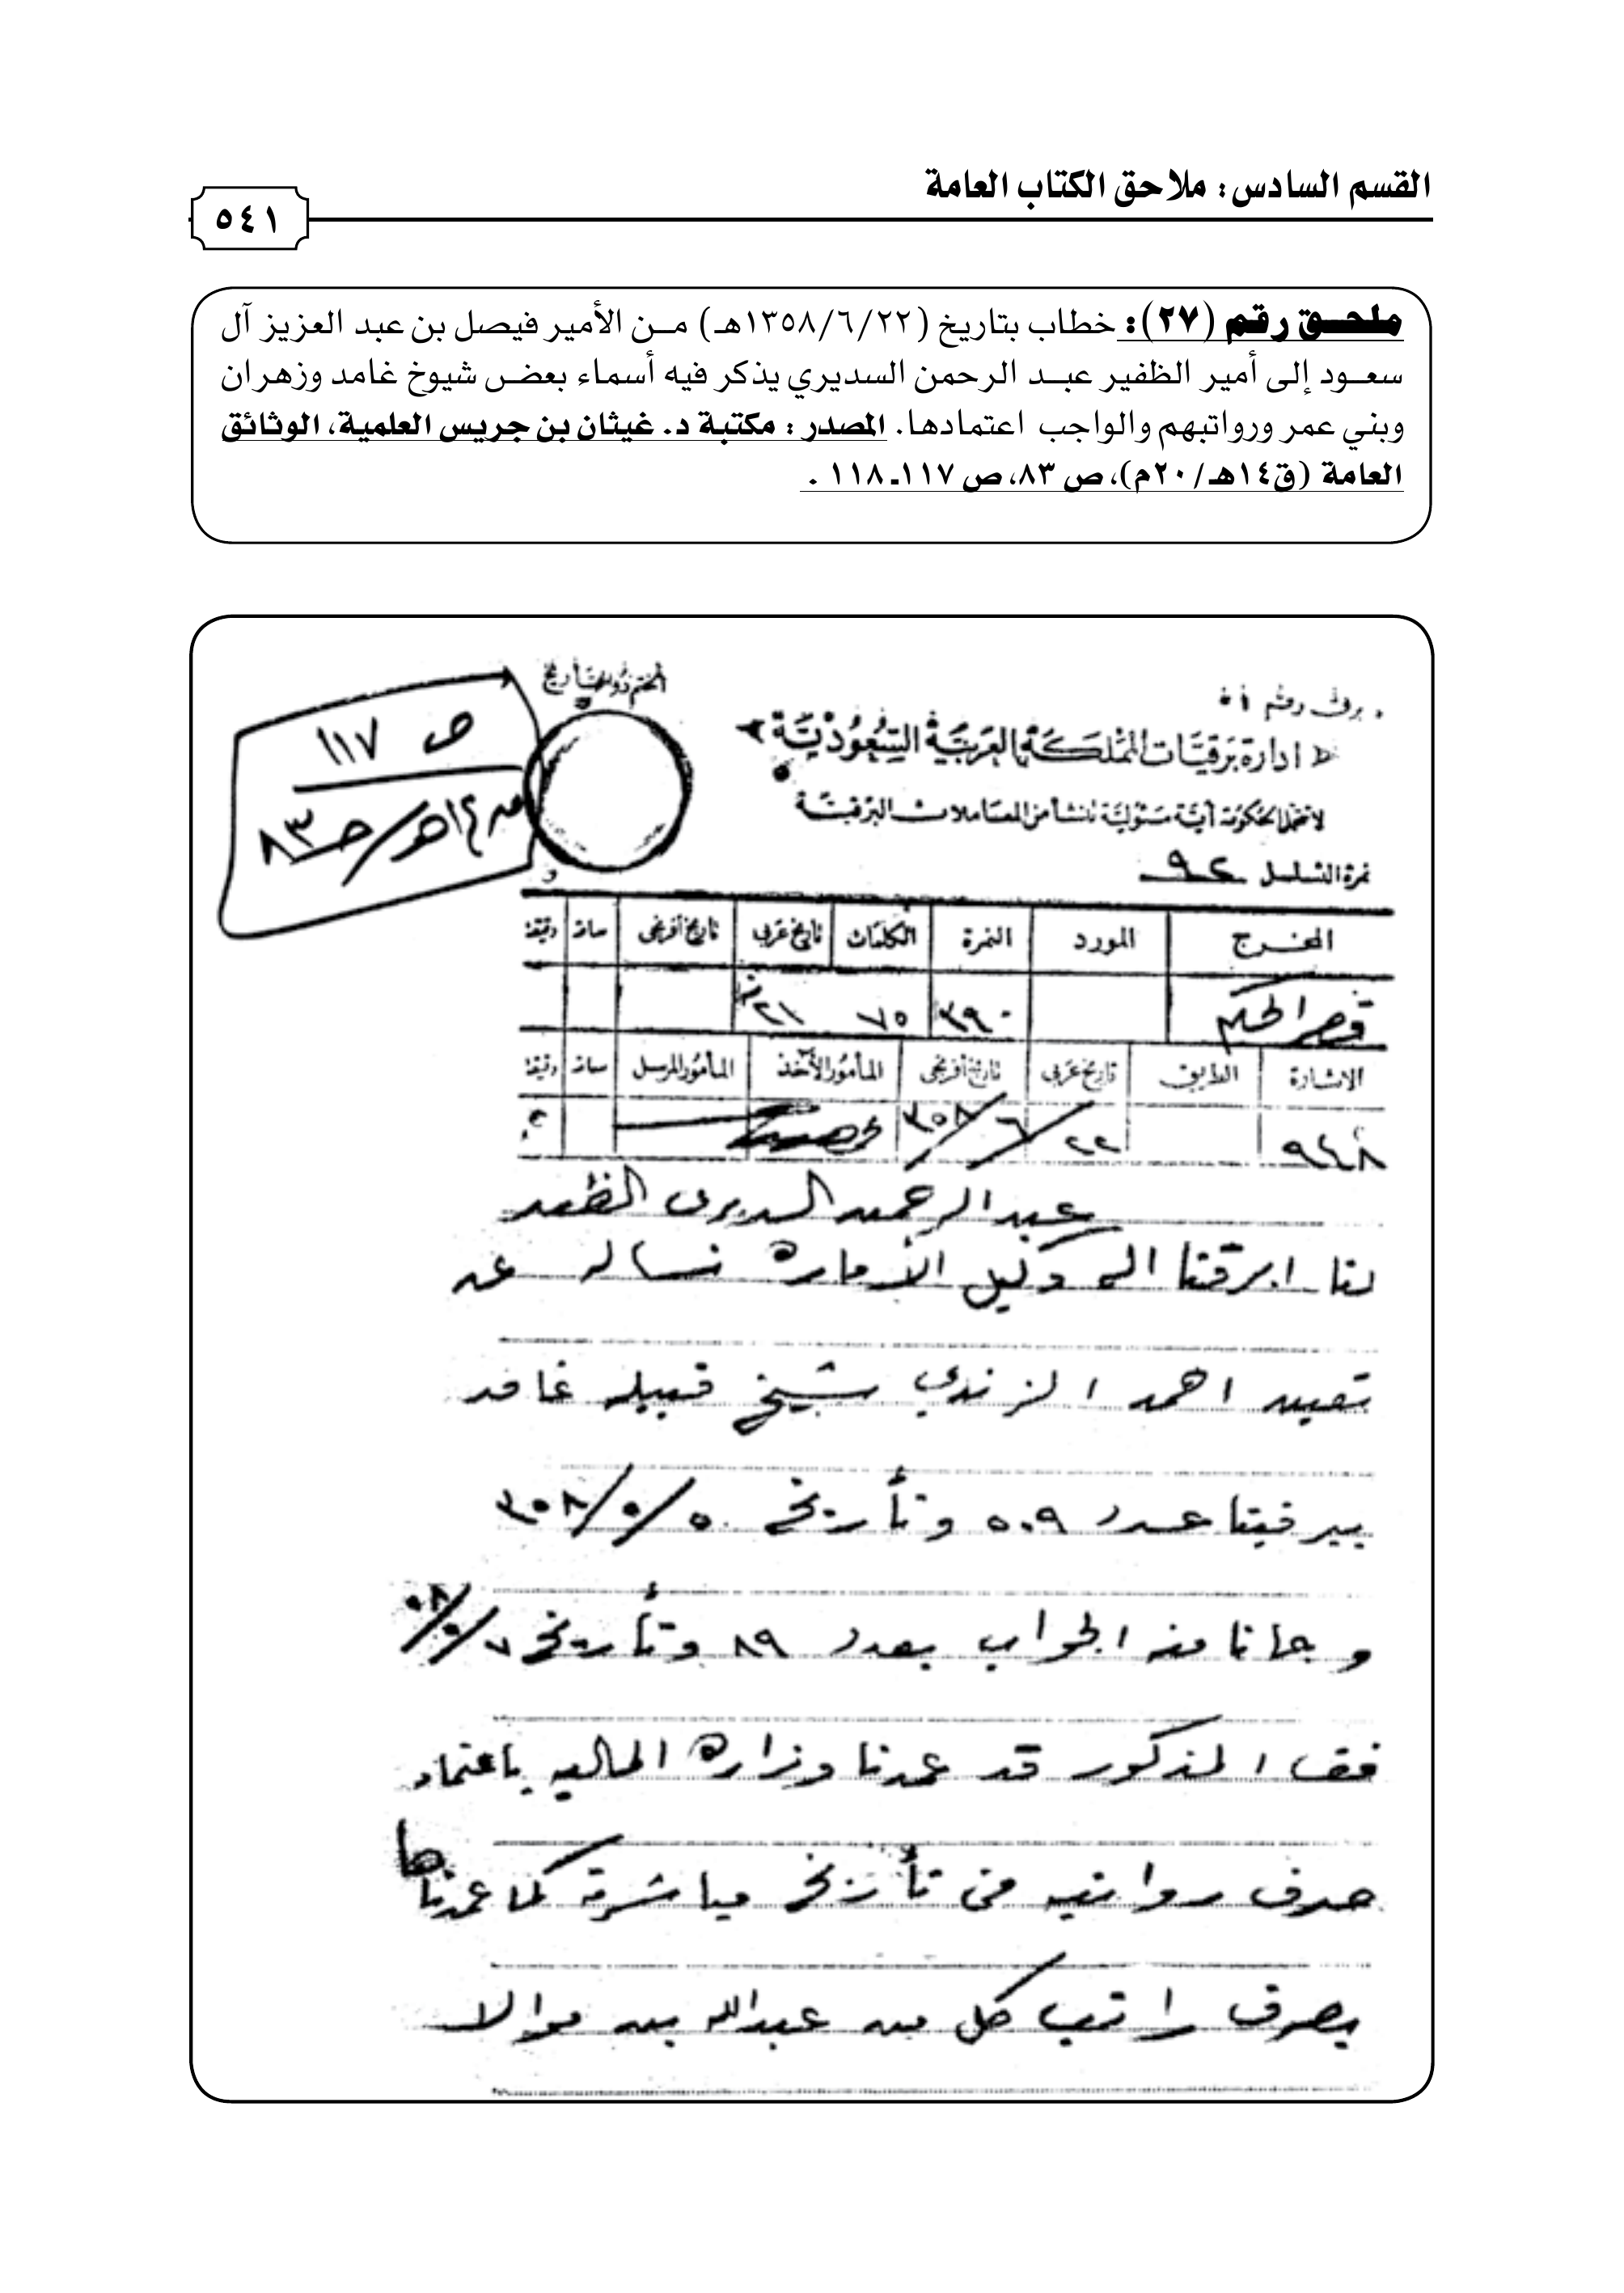 القسم السادس: ملاحق الكتاب العامة
٥٤١
ملحـــق رقم (٢٧): خطاب بتاريخ (١٣٥٨/٦/٢٢هـ) مــن الأمير فيصل بن عبد العزيز آل
سعــود إلى أمير الظفير عبــد الرحمن السديري يذكر فيه أسماء بعض شيوخ غامد وزهران
وبني عمر ورواتبهم والواجب اعتمادها. المصدر: مكتبة د. غيثان بن جريس العلمية، الوثائق
العامة (ق١٤هـ/٢٠م)، ص ٨٣، ص ١١٧ـ ١١٨ .
ص ١١٧
١٤هـ/ حـ ٨٣
الختم ذو التأريخ
برق رقم
ادارة برقيات المملكة العربية السعودية
لا تتحمل الحكومة أية مسئولية تنشأ من المعاملات البرقية
نمرة التسلسل ٩٢
المخرج المورد النمرة الكلمات تاريخ عربي تاريخ أفرنجي ساعة دقيقة
قصر الحكم ٣٩٠ ٧٥ ٢١
الاشارة الطريق تاريخ عربي تاريخ أفرنجي المأمور الآخذ المأمور المرسل ساعة دقيقة
٩٤٨ ٢٢/٦/٣٥٨
عبد الرحمن السديري الظفير
لنا ابرقنا الى وكيل الأمارة نساله عن
تعيين احمد الزندي شيخ قبيله غامد
ببرقيتنا عدد ٥٠٩ وتأريخ ٥/٥/٣٥٨
وجانا منه الجواب بعدد ٨٩ وتأريخ
المذكور قد عمدنا وزارة المالية باعتماد
صرف رواتبه من تأريخ مباشرته كما عمدناها
بصرف راتب كل من عبدالله بن